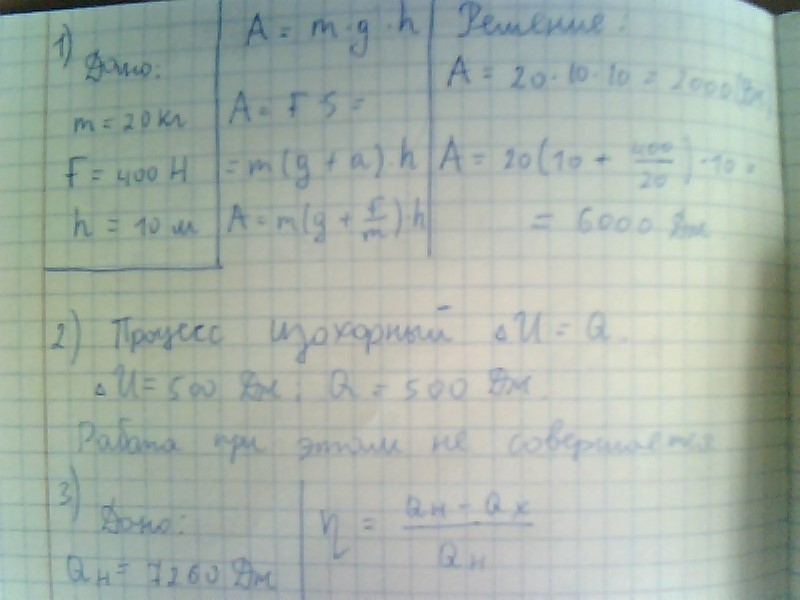 1) Дано:
m = 20 кг
F = 400 Н
h = 10 м
A = m·g·h
A = F S =
= m(g + a)·h
A = m(g + F/m)·h
Решение:
A = 20·10·10 = 2000 (Дж)
A = 20(10 + 400/20)·10 =
= 6000 Дж
2) Процесс изохорный ΔU = Q.
ΔU = 500 Дж; Q = 500 Дж.
Работа при этом не совершается
3) Дано:
Qн = 7260 Дж
η = Qн - Qх / Qн